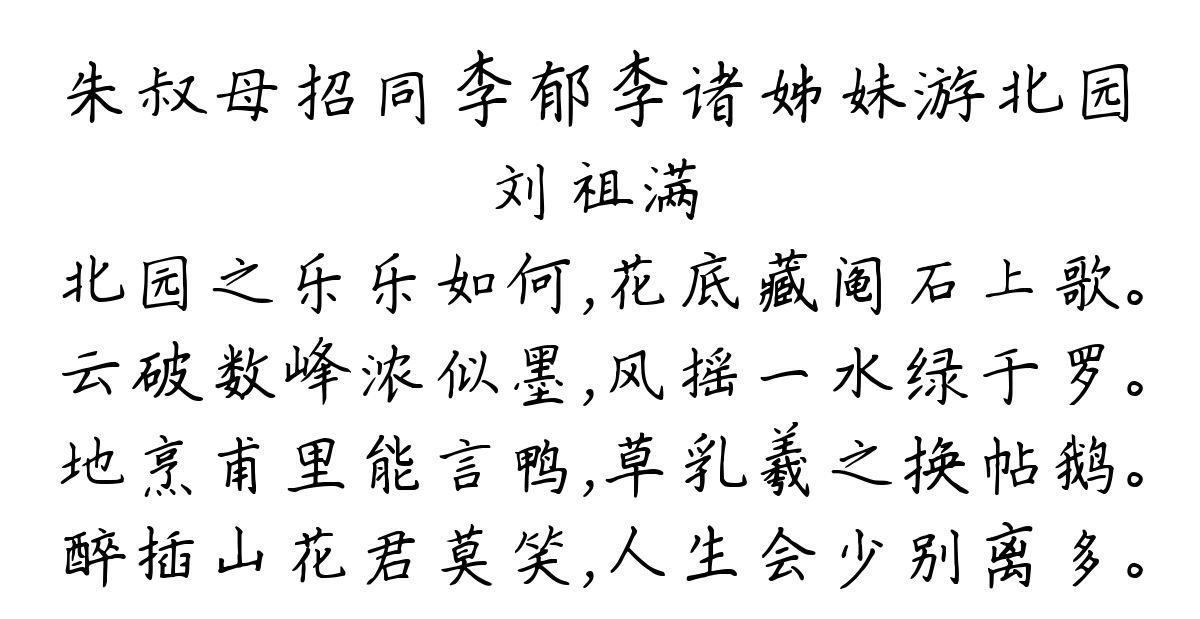 朱叔母招同李郁李诸姊妹游北园
刘祖满
北园之乐乐如何,花底藏阄石上歌。
云破数峰浓似墨,风摇一水绿于罗。
地烹甫里能言鸭,草乳羲之换帖鹅。
醉插山花君莫笑,人生会少别离多。